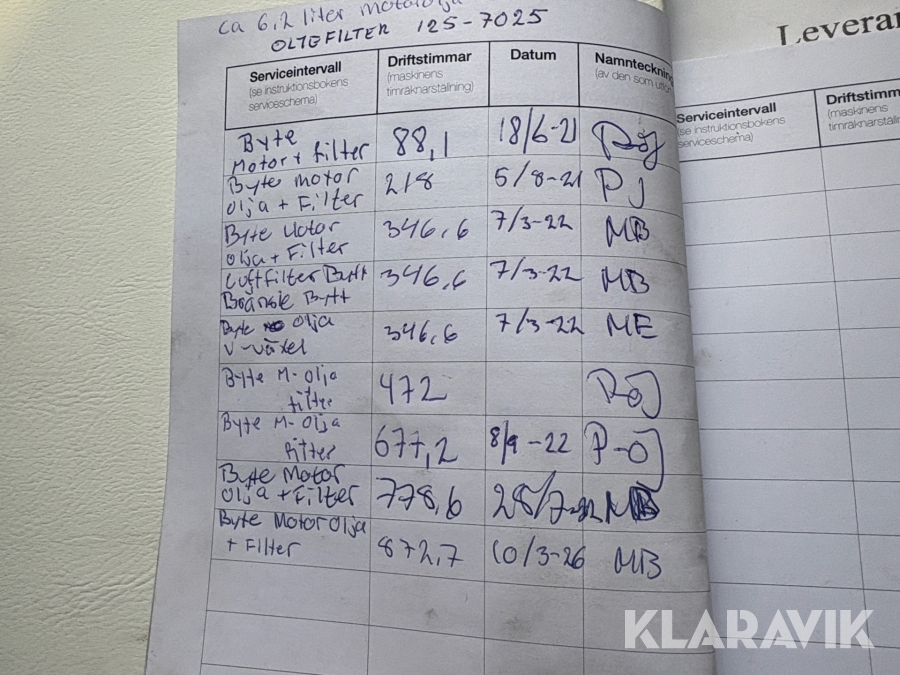 ca 6,2 liter motorolja
OLJEFILTER 125-7025
Leverar
Serviceintervall
(se instruktionsbokens
serviceschema)
Driftstimmar
(maskinens
timräknarställning)
Datum
Namnteckning
(av den som utför
Serviceintervall
(se instruktionsbokens
serviceschema)
Driftstimm
(maskinens
timräknarställn
Byte
Motor + filter
88,1
18/6-21
Byte motor
olja + Filter
218
5/8-21
PJ
Byte Motor
olja + Filter
346,6
7/3-22
MB
Luftfilter Bytt
Bränsle Bytt
346,6
7/3-22
MB
Byte olja
V-växel
346,6
7/3-22
ME
Byte M-olja
filter
472
Byte M-olja
filter
677,2
8/9-22
P-OJ
Byte Motor
olja + Filter
778,6
28/7-22
MB
Byte Motorolja
+ Filter
872,7
10/3-26
MB
KLARAVIK